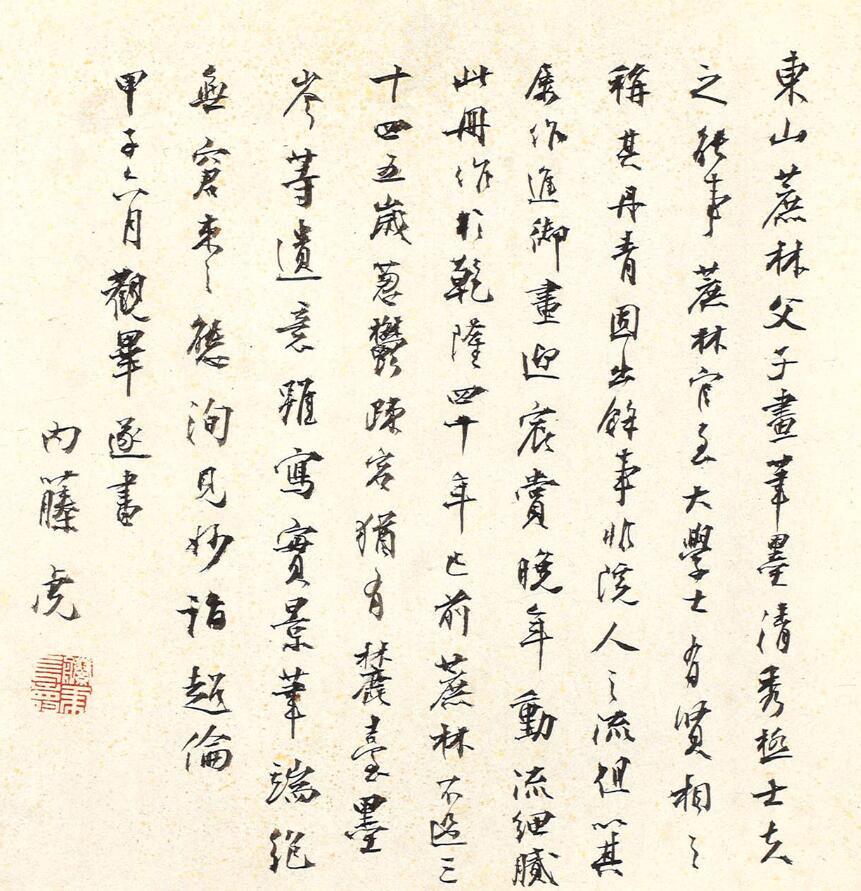 東山蔗林父子畫筆墨清秀極士夫
之能事蔗林官至大學士有賢相之
稱其丹青固出餘事非院人之流但以其
屢作進御畫迎宸賞晚年動流細膩
此冊作於乾隆四十年已前蔗林不過三
十四五歲蒼鬱疎宕猶有麓臺墨
岑等遺意雖寫實景筆端絕
無窘束之態洵見妙詣超倫
甲子六月觀畢遂書
內藤虎